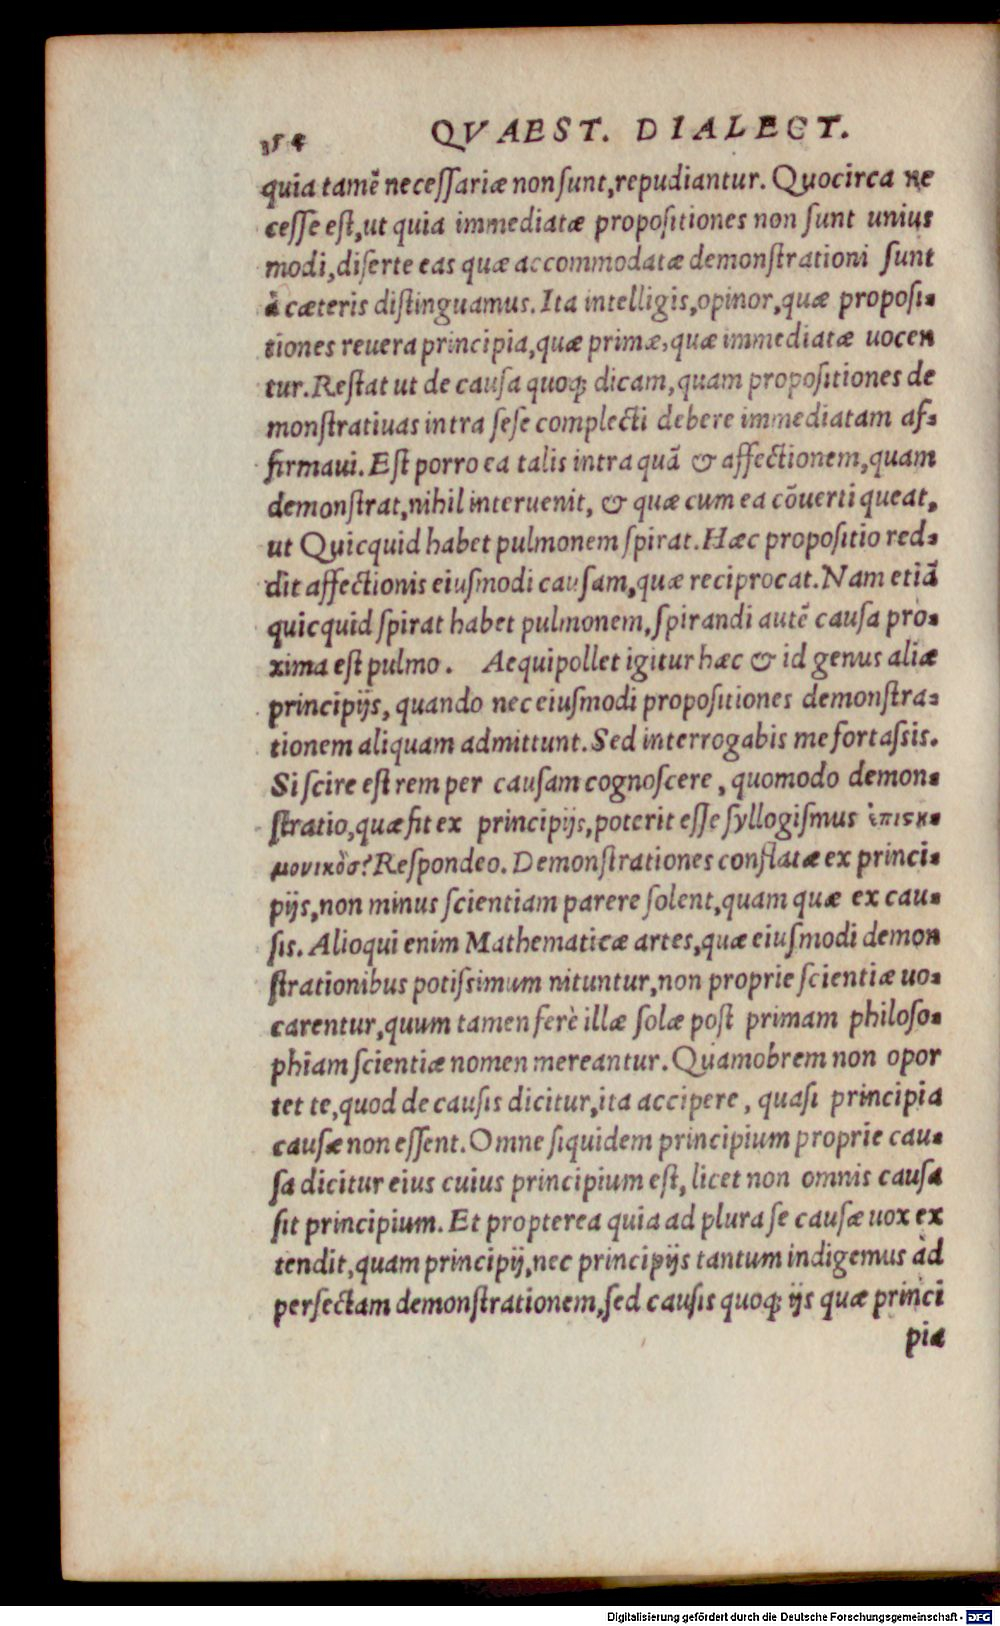 154 QVAEST. DIALECT.
quia tamē necessariæ non sunt, repudiantur. Quocirca ne
cesse est, ut quia immediatæ propositiones non sunt unius
modi, diserte eas quæ accommodatæ demonstrationi sunt
à cæteris distinguamus. Ita intelligis, opinor, quæ proposi-
tiones reuera principia, quæ primæ, quæ immediatæ uocen
tur. Restat ut de causa quoq; dicam, quam propositiones de
monstratiuas intra sese complecti debere immediatam af-
firmaui. Est porro ea talis intra quā & affectionem, quam
demonstrat, nihil interuenit, & quæ cum ea cōuerti queat,
ut Quicquid habet pulmonem spirat. Hæc propositio red-
dit affectionis eiusmodi causam, quæ reciprocat. Nam etiā
quicquid spirat habet pulmonem, spirandi autē causa pro-
xima est pulmo. Aequipollet igitur hæc & id genus aliæ
principijs, quando nec eiusmodi propositiones demonstra-
tionem aliquam admittunt. Sed interrogabis me fortassis.
Si scire est rem per causam cognoscere, quomodo demon-
stratio, quæ fit ex principijs, poterit esse syllogismus ἐπιστη-
μονικὸσ? Respondeo. Demonstrationes constatæ ex princi-
pijs, non minus scientiam parere solent, quam quæ ex cau-
sis. Alioqui enim Mathematicæ artes, quæ eiusmodi demon
strationibus potissimum nituntur, non proprie scientiæ uo-
carentur, quum tamen ferè illæ solæ post primam philoso-
phiam scientiæ nomen mereantur. Quamobrem non opor
tet te, quod de causis dicitur, ita accipere, quasi principia
causæ non essent. Omne siquidem principium proprie cau-
sa dicitur eius cuius principium est, licet non omnis causa
sit principium. Et propterea quia ad plura se causæ uox ex
tendit, quam principij, nec principijs tantum indigemus ad
perfectam demonstrationem, sed causis quoq; ijs quæ princi
pia
Digitalisierung gefördert durch die Deutsche Forschungsgemeinschaft - DFG